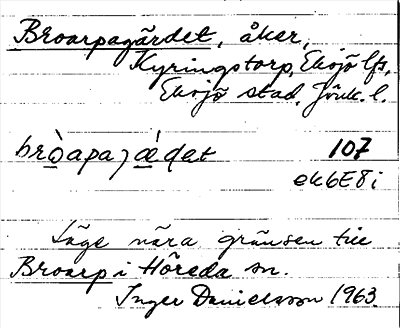 Broarpagärdet, åker,
Kyringstorp, Eksjö lfs,
Eksjö stad. Jönk. l.
bròapaȷæ̀ḍet 107
ek6E8i
Läge nära gränsen till
Broarp i Höreda sn.
Inger Danielsson 1963